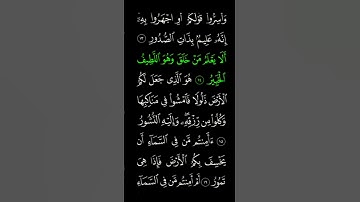 وَأَسِرُّوا۟ قَوْلَكُمْ أَوِ ٱجْهَرُوا۟ بِهِۦٓ
إِنَّهُۥ عَلِيمٌۢ بِذَاتِ ٱلصُّدُورِ ١٣
أَلَا يَعْلَمُ مَنْ خَلَقَ وَهُوَ ٱللَّطِيفُ
ٱلْخَبِيرُ ١٤ هُوَ ٱلَّذِى جَعَلَ لَكُمُ
ٱلْأَرْضَ ذَلُولًا فَٱمْشُوا۟ فِى مَنَاكِبِهَا
وَكُلُوا۟ مِن رِّزْقِهِۦ وَإِلَيْهِ ٱلنُّشُورُ
١٥ ءَأَمِنتُم مَّن فِى ٱلسَّمَآءِ أَن
يَخْسِفَ بِكُمُ ٱلْأَرْضَ فَإِذَا هِىَ
تَمُورُ ١٦ أَمْ أَمِنتُم مَّن فِى ٱلسَّمَآءِ